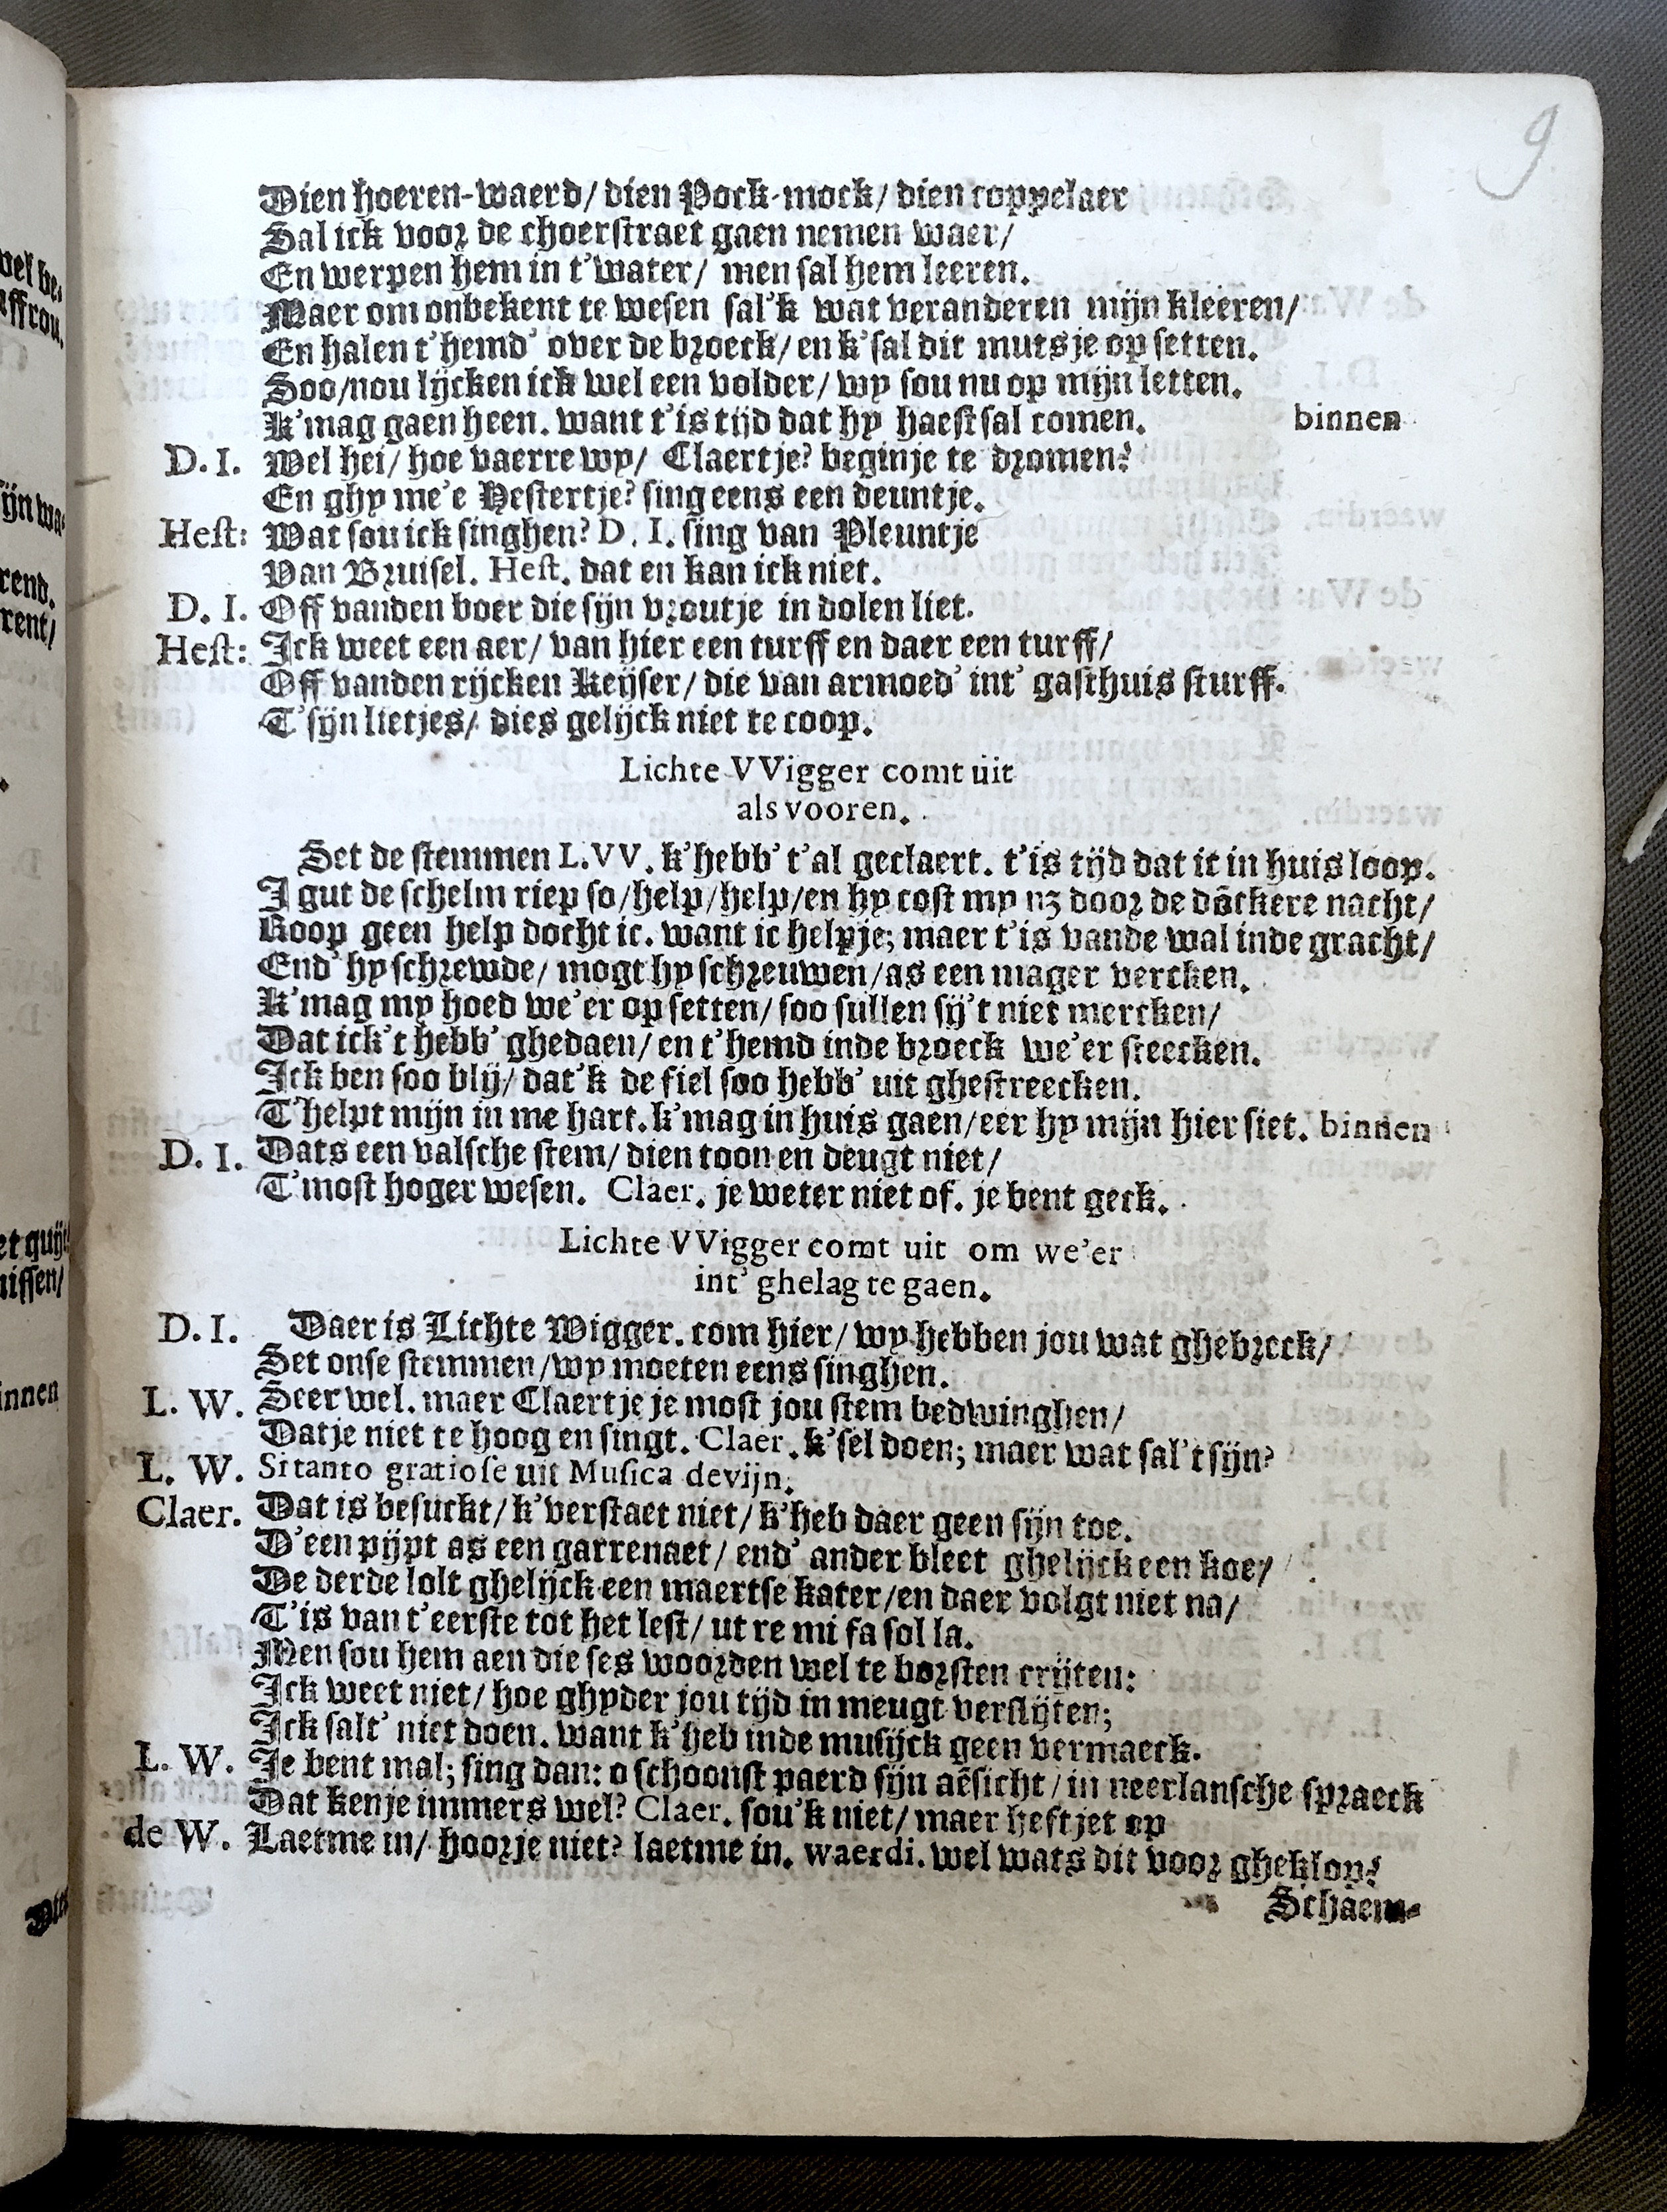 9
Dien hoeren-waerd/ dien Pock-mock/ dien coppelaer
Sal ick voor de choerstraet gaen nemen waer/
En werpen hem in t'water/ men sal hem leeren.
Maer om onbekent te wesen sal'k wat veranderen mijn kleeren/
En halen t'hemd' over de broeck/ en k'sal dit mutsje op setten.
Soo/nou lijcken ick wel een volder/ wy sou nu op mijn letten.
K'mag gaen heen. want t'is tijd dat hy haest sal comen. binnen
D. I. Wel hei/ hoe vaerre wy/ Claertje? beginje te dromen?
En ghy me'e Hestertje? sing eens een deuntje.
Hest: Wat sou ick singhen? D. I. sing van Pleuntje
Van Bruisel. Hest. dat en kan ick niet.
D. I. Off vanden boer die sijn vroutje in dolen liet.
Hest: Ick weet een aer/ van hier een turff en daer een turff/
Off vanden rijcken Keijser/ die van armoed' int' gasthuis sturff.
T'sijn lietjes/ dies gelijck niet te coop.
Lichte VVigger comt uit
als vooren.
Set de stemmen L.VV. k'hebb' t'al geclaert. t'is tijd dat it in huis loop.
I gut de schelm riep so/help/help/en hy cost my nz door de dõckere nacht/
Roop geen help docht ic. want ic helpje; maer t'is vande wal inde gracht/
End' hy schrewde/ mogt hy schreuwen/as een mager vercken.
K'mag my hoed we'er op setten/ soo sullen sij't niet mercken/
Dat ick't hebb' ghedaen/ en t'hemd inde broeck we'er steecken.
Ick ben soo blij/ dat'k de fiel soo hebb' uit ghestreecken.
T'helpt mijn in me hart. k'mag in huis gaen/eer hy mijn hier siet. binnen
D. I. Dats een valsche stem/ dien toon en deugt niet/
T'most hoger wesen. Claer. je weter niet of. je bent geck.
Lichte VVigger comt uit om we'er
int' ghelag te gaen.
D. I. Daer is Lichte Wigger. com hier/ wy hebben jou wat ghebreck/
Set onse stemmen/wy moeten eens singhen.
L. W. Seer wel. maer Claertje je most jou stem bedwinghen/
Datje niet te hoog en singt. Claer. k'sel doen; maer wat sal't sijn?
L. W. Si tanto gratiose uit Musica devijn.
Claer. Dat is besuckt/ k'verstaet niet/ k'heb daer geen sijn toe.
D'een pijpt as een garrenaet/ end' ander bleet ghelijck een koe/
De derde lolt ghelijck een maertse kater/en daer volgt niet na/
T'is van t'eerste tot het lest/ ut re mi fa sol la.
Men sou hem aen die ses woorden wel te borsten crijten:
Ick weet niet/ hoe ghyder jou tijd in meugt verslijten;
Ick salt' niet doen. want k'heb inde musijck geen vermaeck.
L. W. Je bent mal; sing dan: o schoonst paerd sijn aẽsicht/ in neerlansche spraeck
Dat kenje immers wel? Claer. sou'k niet/ maer heftjet op
de W. Laetme in/ hoorje niet? laetme in. waerdi. wel wats dit voor gheklop?
Schaem-